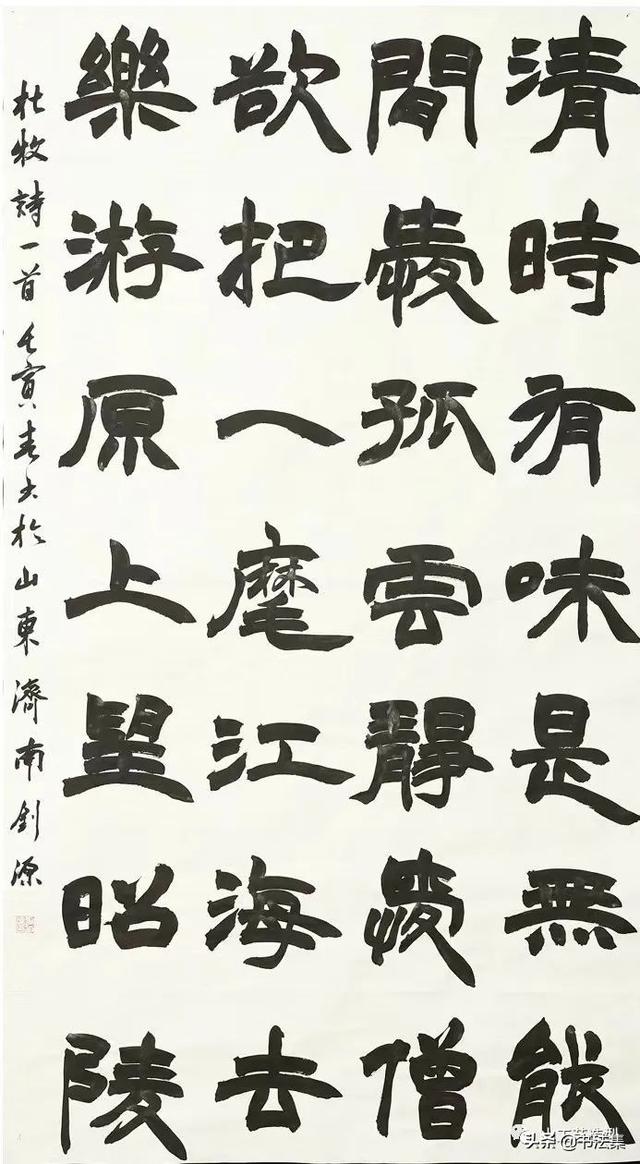 清時有味是無能
間愛孤雲靜愛僧
欲把一麾江海去
樂游原上望昭陵
杜牧詩一首 壬寅春书於山東濟南 源
头条 @书法集